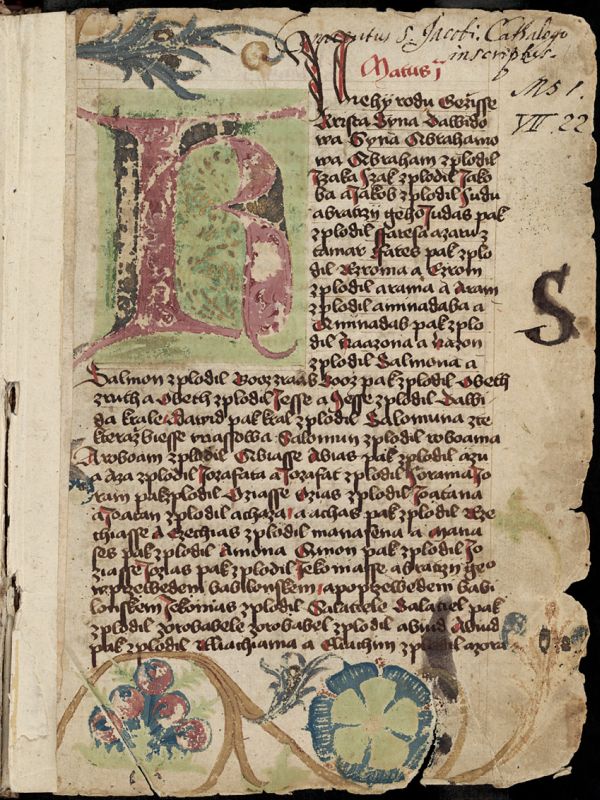 Conventus S. Jacobi. Catalogo
inscriptus.
MS I.
VII. 22
Matus j
K
nehy rodu Gežisse
Krista Syna Dawido
wa Syna Abrahamo
wa Abraham zplodil
Izaka Izak zplodil Jako
ba a Jakob zplodil Judu
a bratrzy geho Judas pak
zplodil Faresa a zaru z
tamar Fares pak zplo
dil Ezroma a Ezrom
zplodil arama a Aram
zplodil aminadaba a
Aminadab pak zplo
dil Naazona a Nazon
zplodil Salmona a
S
Salmon zplodil Booz zraab Booz pak zplodil Obeth
zruth a Obeth zplodil Jesse a Jesse zplodil Dawi
da krale Dawid pak kral zplodil Salomuna zte
kteraz biesse Salomun zplodil roboama
A roboam zplodil Abiasse Abias pak zplodil azu
a Aza zplodil Jozafata a Jozafat zplodil Jorama Jo
ram pak zplodil Oziasse Ozias zplodil Joatana
a Joatan zplodil achaza a achas pak zplodil Eze
chiasse a Ezechias zplodil manasena a mana
ses pak zplodil Amona Amon pak zplodil Jo
ziasse Jozias pak zplodil Jekoniasse a bratrzy geo
wprzewedem babilonskem a poprzewedem babi
lonskem Jekonias zplodil Salatiele Salatiel pak
zplodil zorobabele zorobabel zplodil abiud Abiud
pak zplodil Eliachima a Eliachim zplodil azora